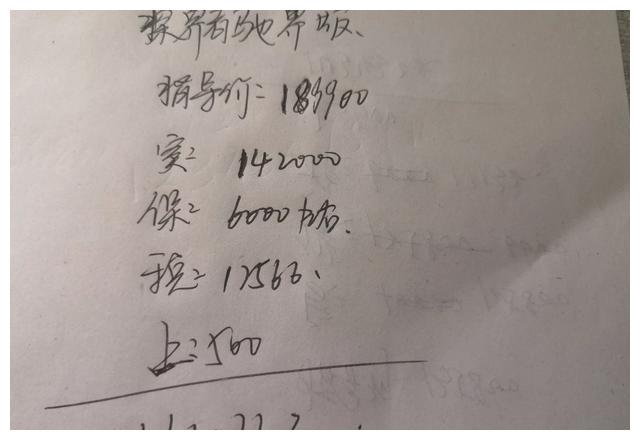 探界者驰界版、
指导价=189900
实= 142000
保= 6000左右.
税= 12566、
上=500